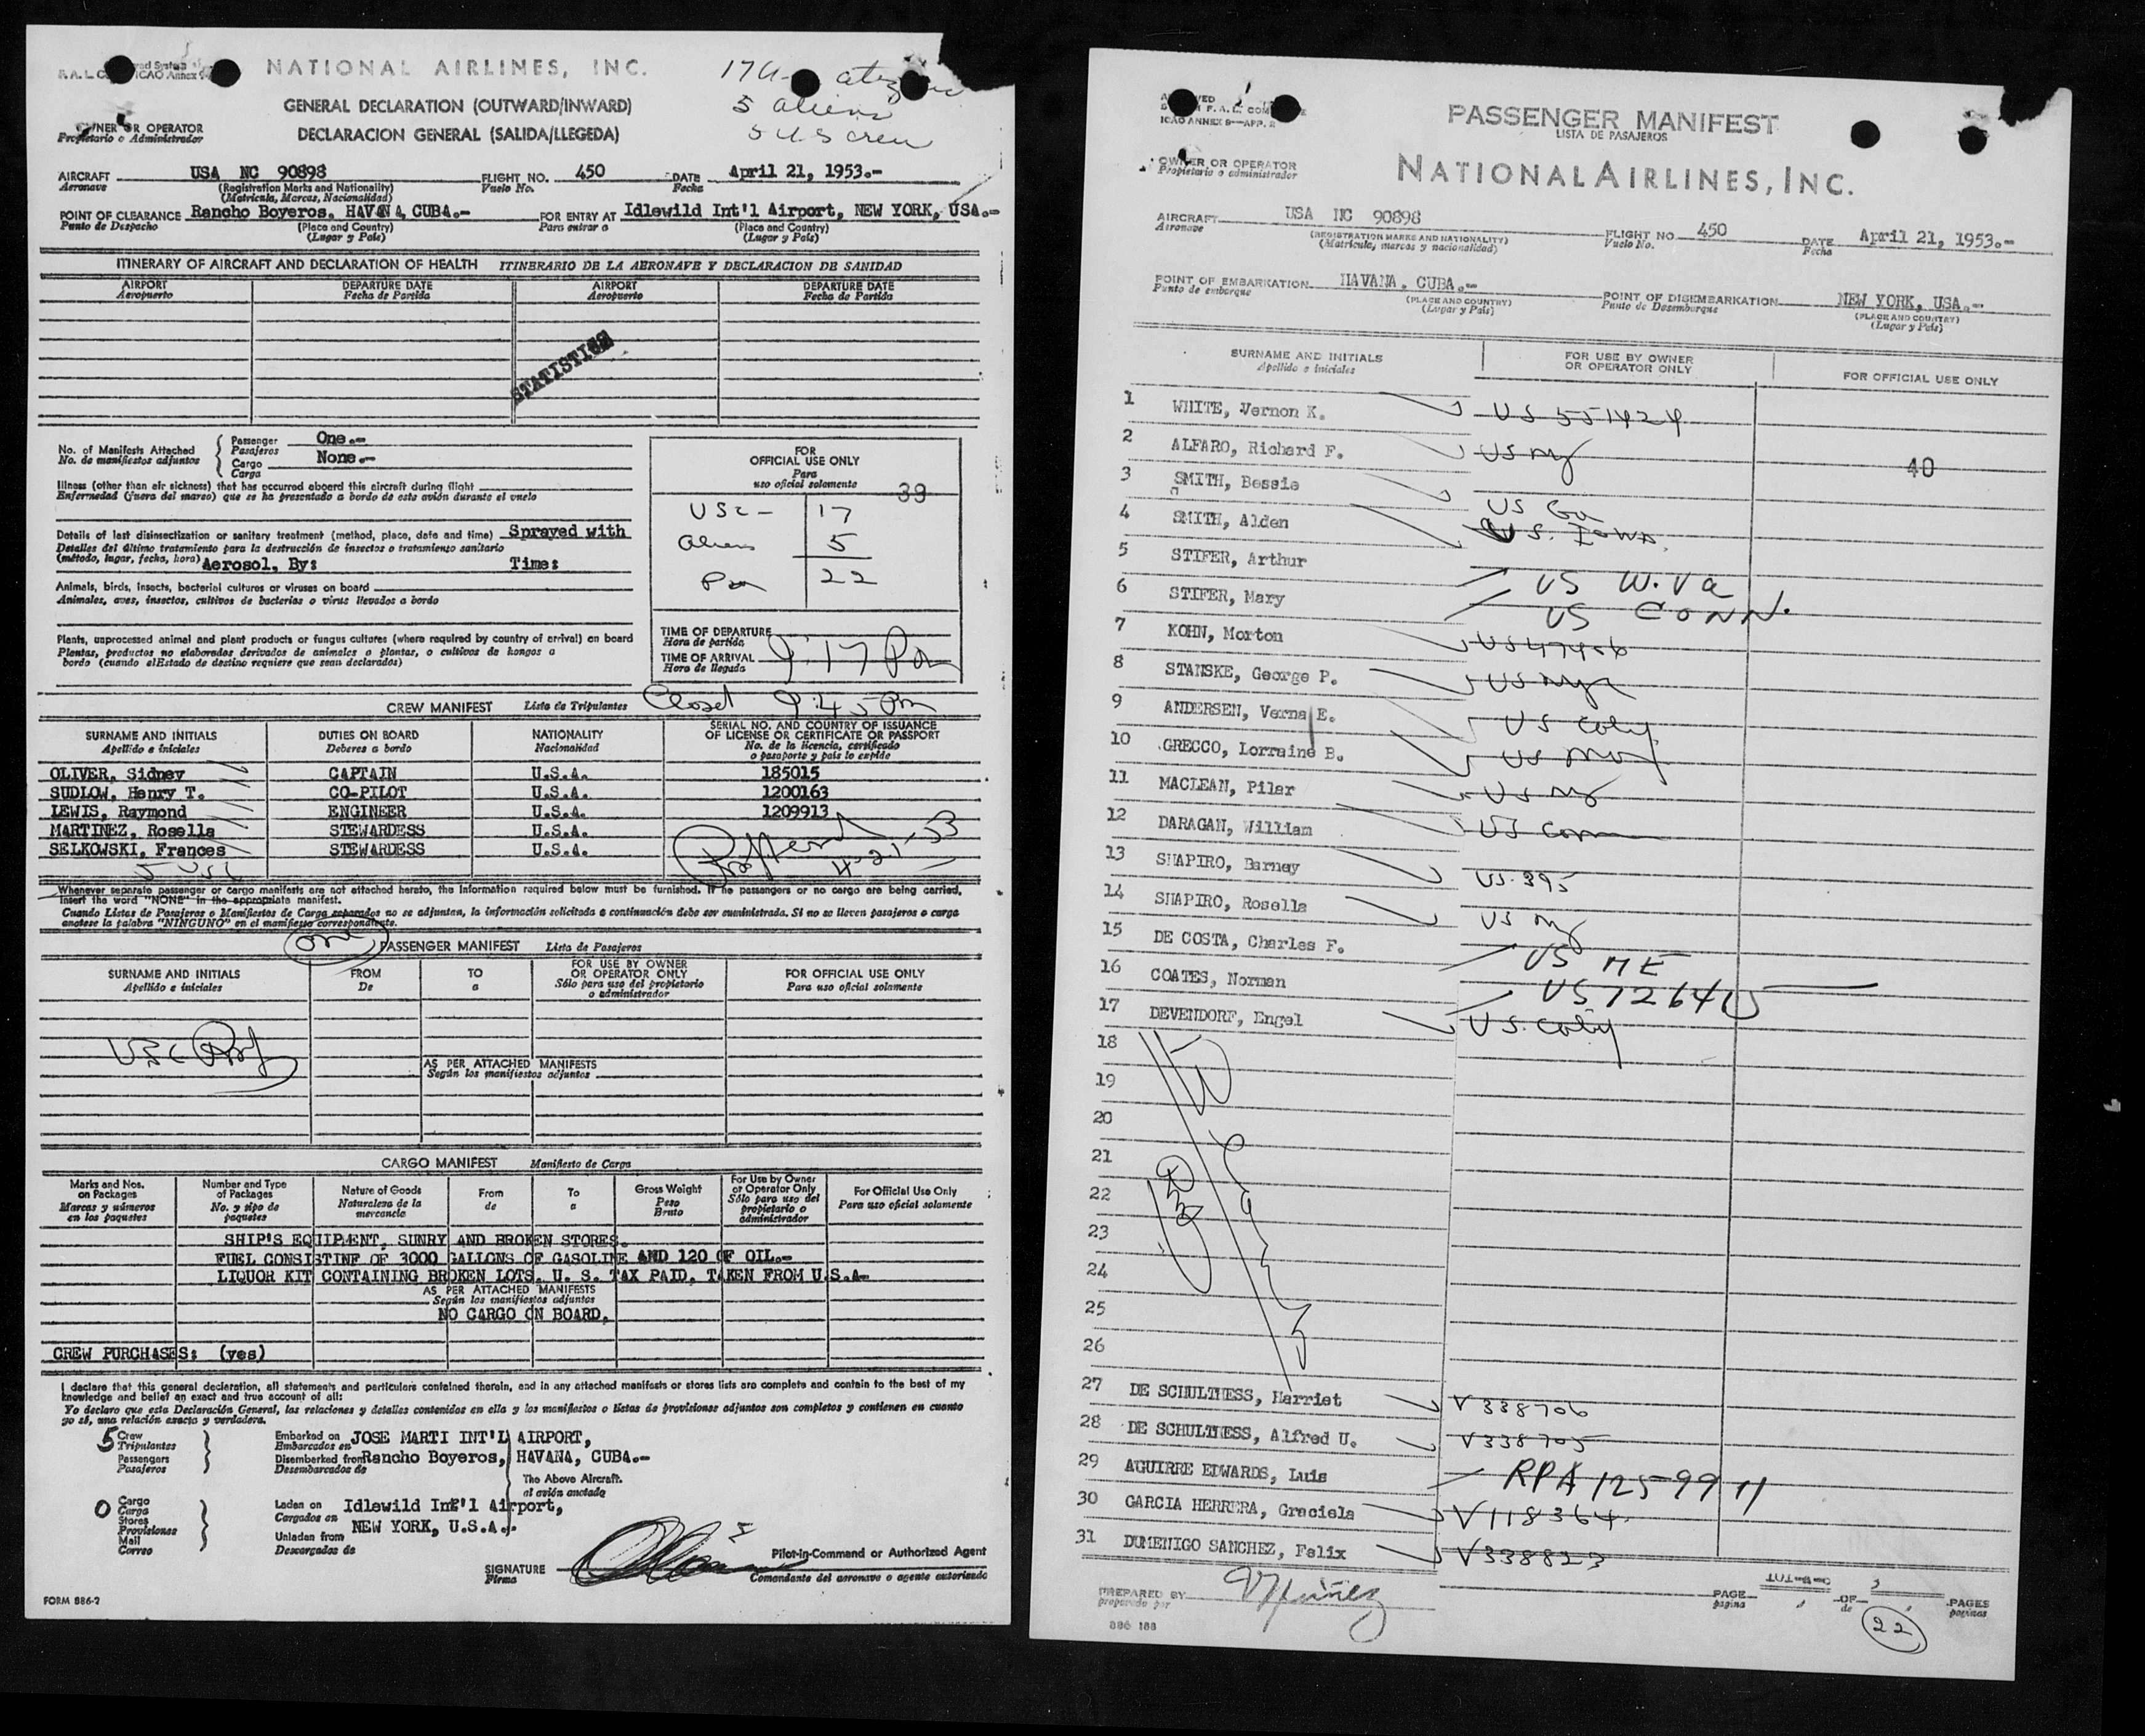 NATIONAL AIRLINES, INC.
GENERAL DECLARATION (OUTWARD/INWARD)
DECLARACION GENERAL (SALIDA/LLEGEDA)
5 aliens
5 US crew
OWNER OR OPERATOR
Propietario o Administrador
AIRCRAFT USA NC 90898 FLIGHT NO. 450 DATE April 21, 1953.-
Aeronave (Registration Marks and Nationality) Vuelo No. Fecha
(Matricula, Marcas, Nacionalidad)
POINT OF CLEARANCE Rancho Boyeros, HAVANA, CUBA.- FOR ENTRY AT Idlewild Int'l Airport, NEW YORK, USA.-
Punto de Despacho (Place and Country) Para entrar a (Place and Country)
(Lugar y Pais) (Lugar y Pais)
ITINERARY OF AIRCRAFT AND DECLARATION OF HEALTH ITINERARIO DE LA AERONAVE Y DECLARACION DE SANIDAD
AIRPORT DEPARTURE DATE AIRPORT DEPARTURE DATE
Aeropuerto Fecha de Partida Aeropuerto Fecha de Partida
STATISTICS
No. of Manifests Attached Passenger One.-
No. de manifiestos adjuntos Pasajeros
Cargo None.-
Carga
Illness (other than air sickness) that has occurred aboard this aircraft during flight
Enfermedad (fuera del mareo) que se ha presentado a bordo de este avión durante el vuelo
Details of last disinsectization or sanitary treatment (method, place, date and time) Sprayed with
Detalles del último tratamiento para la destrucción de insectos o tratamiento sanitario
(método, lugar, fecha, hora) Aerosol, By: Time:
Animals, birds, insects, bacterial cultures or viruses on board
Animales, aves, insectos, cultivos de bacterias o virus llevados a bordo
Plants, unprocessed animal and plant products or fungus cultures (where required by country of arrival) on board
Plantas, productos no elaborados derivados de animales o plantas, o cultivos de hongos a
bordo (cuando elEstado de destino requiere que sean declarados)
FOR
OFFICIAL USE ONLY
Para
uso oficial solamente
39
USC - 17
Aliens 5
22
TIME OF DEPARTURE
Hora de partida
TIME OF ARRIVAL 9:17 Pm
Hora de llegada
Closed 9:45 Pm
CREW MANIFEST Lista de Tripulantes
SURNAME AND INITIALS DUTIES ON BOARD NATIONALITY SERIAL NO. AND COUNTRY OF ISSUANCE
OF LICENSE OR CERTIFICATE OR PASSPORT
Apellido e iniciales Deberes a bordo Nacionalidad No. de la licencia, certificado
o pasaporte y país lo expide
OLIVER, Sidney CAPTAIN U.S.A. 185015
SUDLOW, Henry T. CO-PILOT U.S.A. 1200163
LEWIS, Raymond ENGINEER U.S.A. 1209913
MARTINEZ, Rosella STEWARDESS U.S.A.
SELKOWSKI, Frances STEWARDESS U.S.A.
4-21-53
5 USC
Whenever separate passenger or cargo manifests are not attached hereto, the information required below must be furnished. If no passengers or no cargo are being carried,
insert the word "NONE" in the appropriate manifest.
Cuando Listas de Pasajeros o Manifiestos de Carga separados no se adjuntan, la información solicitada a continuación debe ser suministrada. Si no se lleven pasajeros o carga
anotese la palabra "NINGUNO" en el manifiesto correspondiente.
One
PASSENGER MANIFEST Lista de Pasajeros
SURNAME AND INITIALS FROM TO FOR USE BY OWNER OR OPERATOR ONLY FOR OFFICIAL USE ONLY
Apellido e iniciales De a Sólo para uso del propietario o administrador Para uso oficial solamente
AS PER ATTACHED MANIFESTS
Según los manifiestos adjuntos
CARGO MANIFEST Manifiesto de Carga
Marks and Nos. on Packages Number and Type of Packages Nature of Goods From To Gross Weight For Use by Owner or Operator Only For Official Use Only
Marcas y números en los paquetes No. y tipo de paquetes Naturaleza de la mercancia de a Peso Bruto Sólo para uso del propietario o administrador Para uso oficial solamente
SHIP'S EQUIPMENT, SUNRY AND BROKEN STORES.
FUEL CONSISTINF OF 3000 GALLONS OF GASOLINE AND 120 OF OIL.-
LIQUOR KIT CONTAINING BROKEN LOTS, U. S. TAX PAID, TAKEN FROM U.S.A-
AS PER ATTACHED MANIFESTS
Según los manifiestos adjuntos
NO CARGO ON BOARD.
CREW PURCHASES: (yes)
I declare that this general declaration, all statements and particulars contained therein, and in any attached manifests or stores lists are complete and contain to the best of my
knowledge and belief an exact and true account of all:
Yo declaro que esta Declaración General, las relaciones y detalles contenidos en ella y los manifiestos o listas de provisiones adjuntos son completos y contienen en cuanto
yo sé, una relación exacta y verdadera.
5 Crew Embarked on JOSE MARTI INT'L AIRPORT,
Tripulantes Embarcados en
Passengers Disembarked from Rancho Boyeros, HAVANA, CUBA.-
Pasajeros Desembarcados de
The Above Aircraft.
al avión anotado
0 Cargo Laden on Idlewild Int'l Airport,
Carga Cargados en
Stores NEW YORK, U.S.A.
Provisiones Unladen from
Mail Descargados de
Correo
SIGNATURE Pilot-in-Command or Authorized Agent
Firma Comandante del aeronave o agente autorizado
FORM 886-2
PASSENGER MANIFEST
LISTA DE PASAJEROS
ICAO ANNEX 9—APP. 2
OWNER OR OPERATOR
Propietario o administrador
NATIONAL AIRLINES, INC.
AIRCRAFT USA NC 90898 FLIGHT NO 450 DATE April 21, 1953.-
Aeronave (REGISTRATION MARKS AND NATIONALITY) Vuelo No. Fecha
(Matricula, marcas y nacionalidad)
POINT OF EMBARKATION HAVANA, CUBA.- POINT OF DISEMBARKATION NEW YORK, USA.-
Punto de embarque (PLACE AND COUNTRY) Punto de Desembarque (PLACE AND COUNTRY)
(Lugar y País) (Lugar y País)
SURNAME AND INITIALS FOR USE BY OWNER OR OPERATOR ONLY FOR OFFICIAL USE ONLY
Apellido e iniciales
1 WHITE, Vernon K. US 551424
2 ALFARO, Richard F. US NY
40
3 SMITH, Bessie US Ga
4 SMITH, Alden U.S. Iowa.
5 STIFER, Arthur US W.Va
6 STIFER, Mary US CONN.
7 KOHN, Morton US 47456
8 STANSKE, George P. US
9 ANDERSEN, Verna E. US
10 GRECCO, Lorraine B. US
11 MACLEAN, Pilar US NY
12 DARAGAN, William US Conn
13 SHAPIRO, Barney US 395
14 SHAPIRO, Rosella US NY
15 DE COSTA, Charles F. US ME
16 COATES, Norman US 126415
17 DEVENDORF, Engel US
18
19
20
21
22
23
24
25
26
27 DE SCHULTHESS, Harriet V 338706
28 DE SCHULTHESS, Alfred U. V338705
29 AGUIRRE EDWARDS, Luis RPA 1259911
30 GARCIA HERRERA, Graciela V118364
31 DUMENIGO SANCHEZ, Felix V338823
PREPARED BY VNúñez PAGE OF PAGES
preparado por pagina de paginas
886 188
22